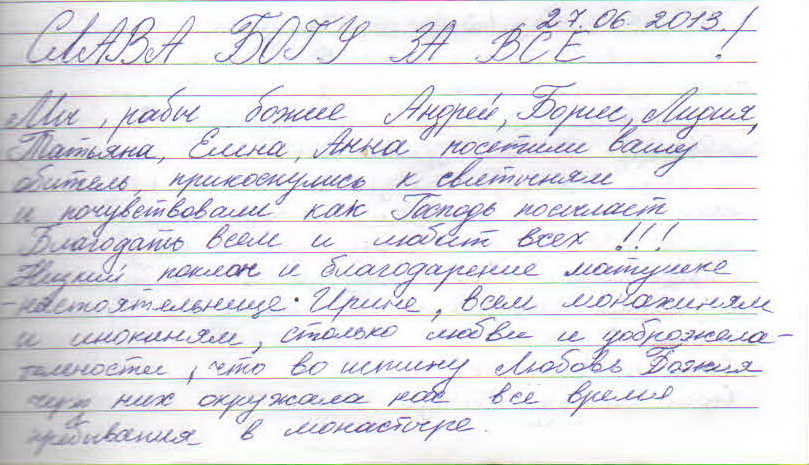 27.06.2013.
СЛАВА БОГУ ЗА ВСЕ !
Мы, рабы божие Андрей, Борис, Лидия,
Татьяна, Елена, Анна посетили вашу
обитель, прикоснулись к святыням
и почувствовали как Господь посылает
Благодать всем и любит всех !!!
Низкий поклон и благодарение матушке
-настоятельнице Ирине, всем монахиням
и инокиням, столько любви и доброжела-
тельности, что во истину Любовь Божия
через них окружала нас все время
пребывания в монастыре.